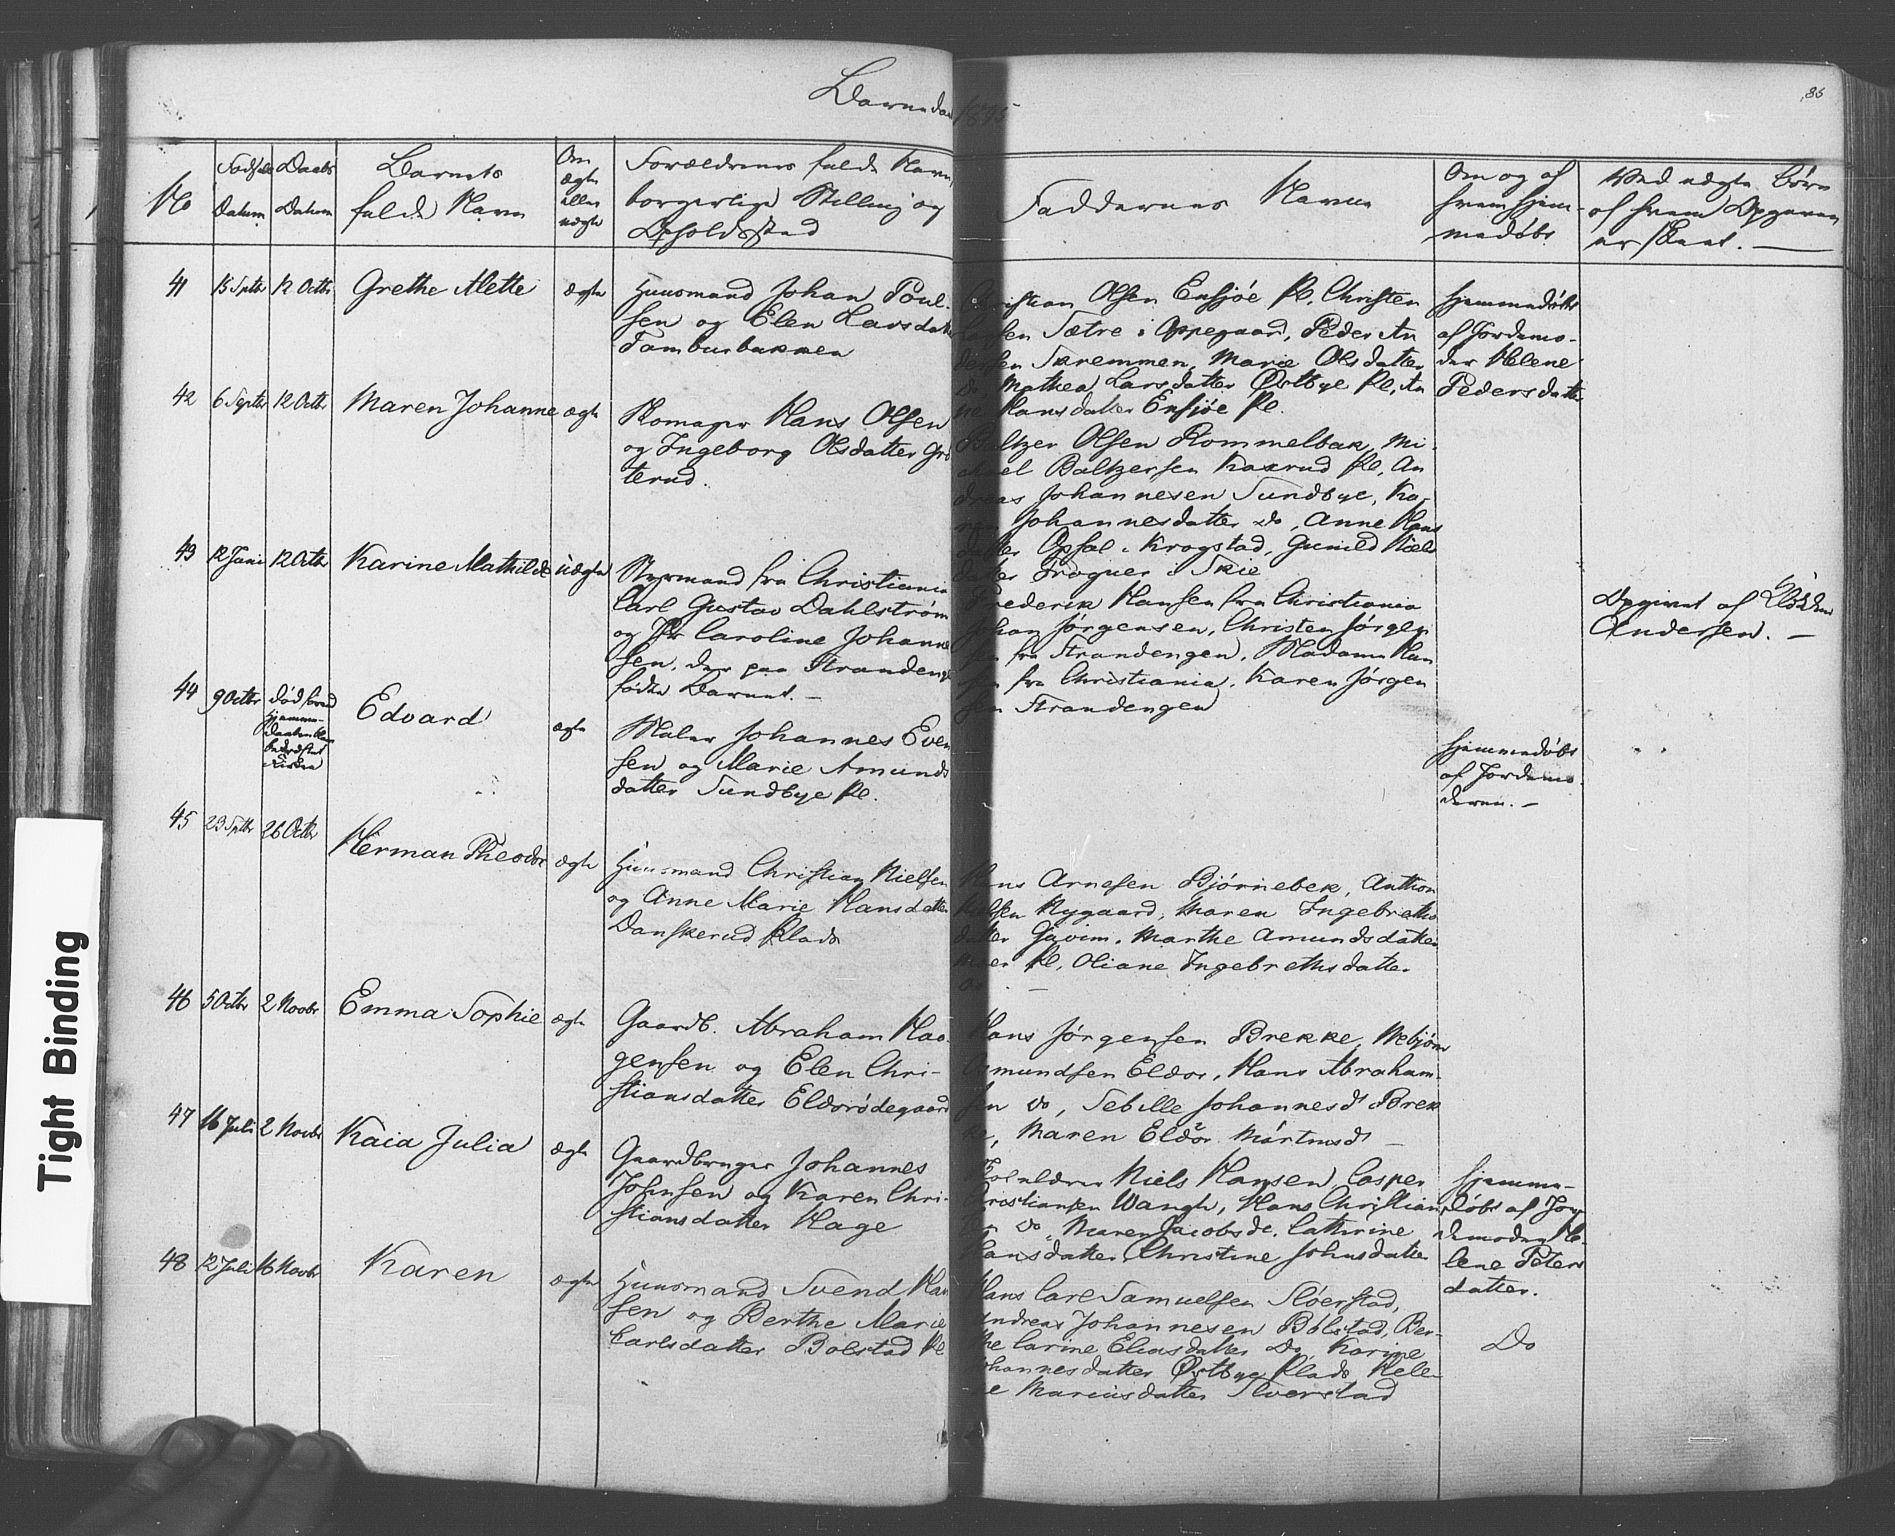 Barnedaab 1835
86
No
Fødsels Datum
Daabs Datum
Barnets
fulde Navn
Om
ægte
eller
uægte
Forældrenes fulde Navn,
borgerlige Stilling og
Opholdsstad
Faddernes Navne
Om og af
hvem hjem-
medøbt
Ved uægte Børn
af hvem Opgaven
er skeet. —
41 15 Septbr 12 Octbr Grethe Mette ægte
Huusmand Johan Poul-
sen og Elen Larsdatter
Tamburbakken
Christian Olsen Ensjøe Pl. Christen
Larsen Sætre i Oppegaard, Peder An
dersen Skremmen, Marie Olsdatter
Do, Mathea Larsdatter Østbye Pl, An
ne Hansdatter Ensjøe Pl.
hjemmedøbt
af Jordemo-
der Helene
Pedersdatter
42 6 Septbr 12 Octbr Maren Johanne ægte
Skomager Hans Olsen
og Ingeborg Olsdatter Gro
terud.
Baltzer Olsen Kommelbak, Mi-
chael Baltzersen Kaxrud Pl, An
dreas Johannesen Sundbye, Ka-
ren Johannesdatter Do, Anne Hans
datter Opsal i Krogstad, Gunild Niels
datter Frogner i Skie
43 12 Juni 12 Octbr Karine Mathilde uægte
Styrmand fra Christiania
Carl Gustav Dahlström
og Caroline Johanne
sen, der paa Strandengen
fødte Barnet. —
Frederik Hansen fra Christiania
Johan Jørgensen, Christen Jørgen
sen fra Strandengen, Madame Han
sen fra Christiania, Karen Jørgen
sen Strandengen
Opgivet af
Andersen. —
44 9 Octbr død
hjemme-
daaben
Kirken
Edvard ægte
Maler Johannes Even
sen og Marie Amunds
datter Sundbye Pl.
hjemmedøbt
af Jordemo-
deren. —
45 23 Septbr 26 Octbr Herman Theodor ægte
Huusmand Christian Nielsen
og Anne Marie Hansdatter
Danskerud Plads
Hans Arnesen Bjørnebek, Anthon
Nielsen Nygaard, Maren Ingebreths
datter Gjøvim, Marthe Amundsdatter
Moer Pl, Oliane Ingebrethsdatter
Do —
46 5 Octbr 2 Novbr Emma Sophie ægte
Gaardb. Abraham Haa-
gensen og Elen Chri-
stiansdatter Eldorødegaard
Hans Jørgensen Brekke, Nebjørn
Asmundsen Eldor, Hans Abraham-
sen Do, Sebille Johannesd Brek
ke, Maren Eldor Mortensd —
47 16 Juli 2 Novbr Kaia Julia ægte
Gaardbruger Johannes
Johnsen og Karen Chri-
stiansdatter Hage
Niels Hansen, Casper
Christiansen Wangh, Hans Christian
sen Do, Maren Jacobsd. Cathrine
Hansdatter, Christine Johnsdatter
hjemme-
døbt af Jor
demoder He-
lene Peters
datter.
48 12 Juli 16 Novbr Karen ægte
Huusmand Svend Han
sen og Berthe Marie
Carlsdatter Bølstad Pl
Hans Carl Samuelsen Sloerstad,
Andreas Johannesen Bølstad, Ber-
the Carine Eliasdatter Do, Karine
Johannesdatter Østbye Plads, Hele-
ne Mariusdatter Sloerstad
Do
Tight Binding